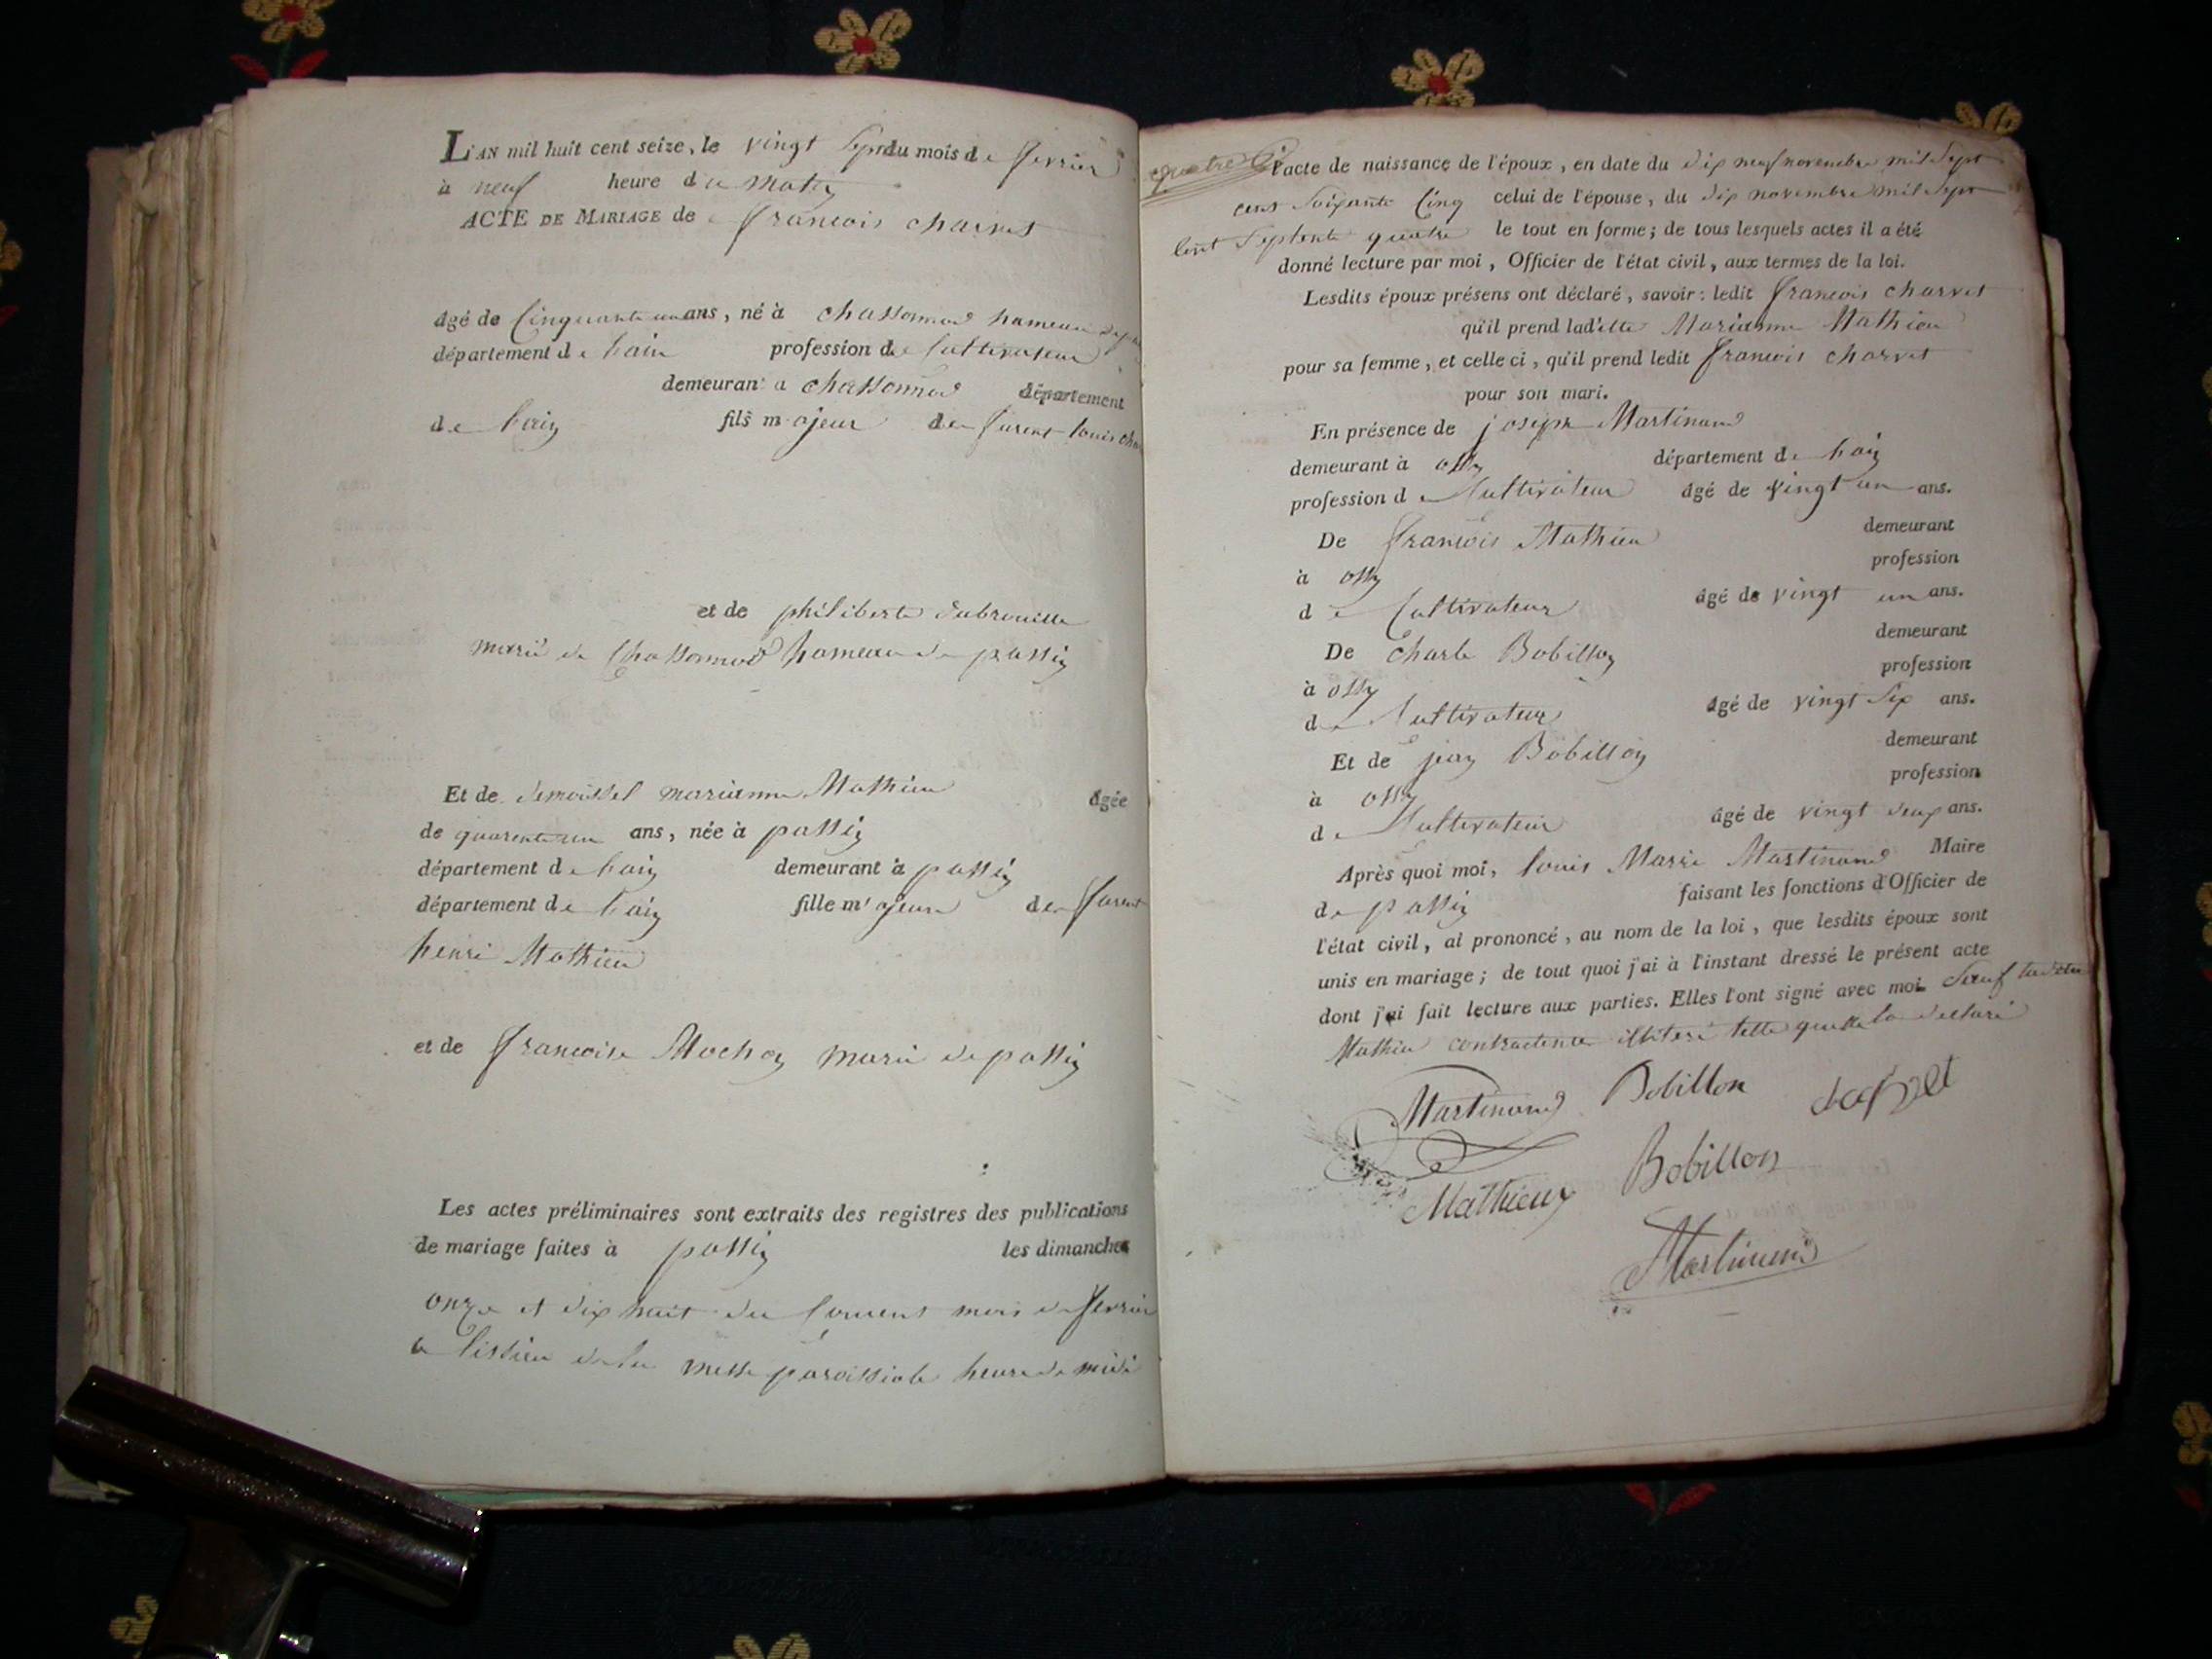 L'AN mil huit cent seize, le vingt Sept du mois de fevrier
à neuf heure du Matin
ACTE DE MARIAGE de francois charvet
âgé de Cinquante un ans, né à chassonnod hameau
département de lain profession de Cultivateur
demeurant a chassonnod département
de lain fils majeur de furent louis
et de philiberte dubrouille
marié de Chassonnod hameau de passin
Et de demoissel marianne Mathieu âgée
de quarente un ans, née à passin
département de lain demeurant à passin
département de lain fille majeure de furent
henri Mathieu
et de francoise Mochon marié de passin
Les actes préliminaires sont extraits des registres des publications
de mariage faites à passin les dimanches
onze et dix huit du Courent mois de fevrier
a lissieu de la messe paroissiale heure de midi
l'acte de naissance de l'époux, en date du dix neuf novembre mil Sept
cent Soixante Cinq celui de l'épouse, du dix novembre mil Sept
Cent Septente quatre le tout en forme; de tous lesquels actes il a été
donné lecture par moi, Officier de l'état civil, aux termes de la loi.
Lesdits époux présens ont déclaré, savoir: ledit francois charvet
qu'il prend ladite Marianne Mathieu
pour sa femme, et celle ci, qu'il prend ledit francois charvet
pour son mari.
En présence de joseph Martinand
demeurant à ossy département de lain
profession de Cultivateur âgé de vingt un ans.
De francois Mathieu demeurant
à ossy profession
de Cultivateur âgé de vingt un ans.
De Charle Bobillon demeurant
à ossy profession
de Cultivateur âgé de vingt Six ans.
Et de jean Bobillon demeurant
à ossy profession
de Cultivateur âgé de vingt deux ans.
Après quoi moi, louis Marie Martinand Maire
de passin faisant les fonctions d'Officier de
l'état civil, ai prononcé, au nom de la loi, que lesdits époux sont
unis en mariage; de tout quoi j'ai à l'instant dressé le présent acte
dont j'ai fait lecture aux parties. Elles l'ont signé avec moi Sauf ladite
Mathieu contractente illiteré telle quelle la declaré
Martinand Bobillon
Mathieux Bobillon
Martinand